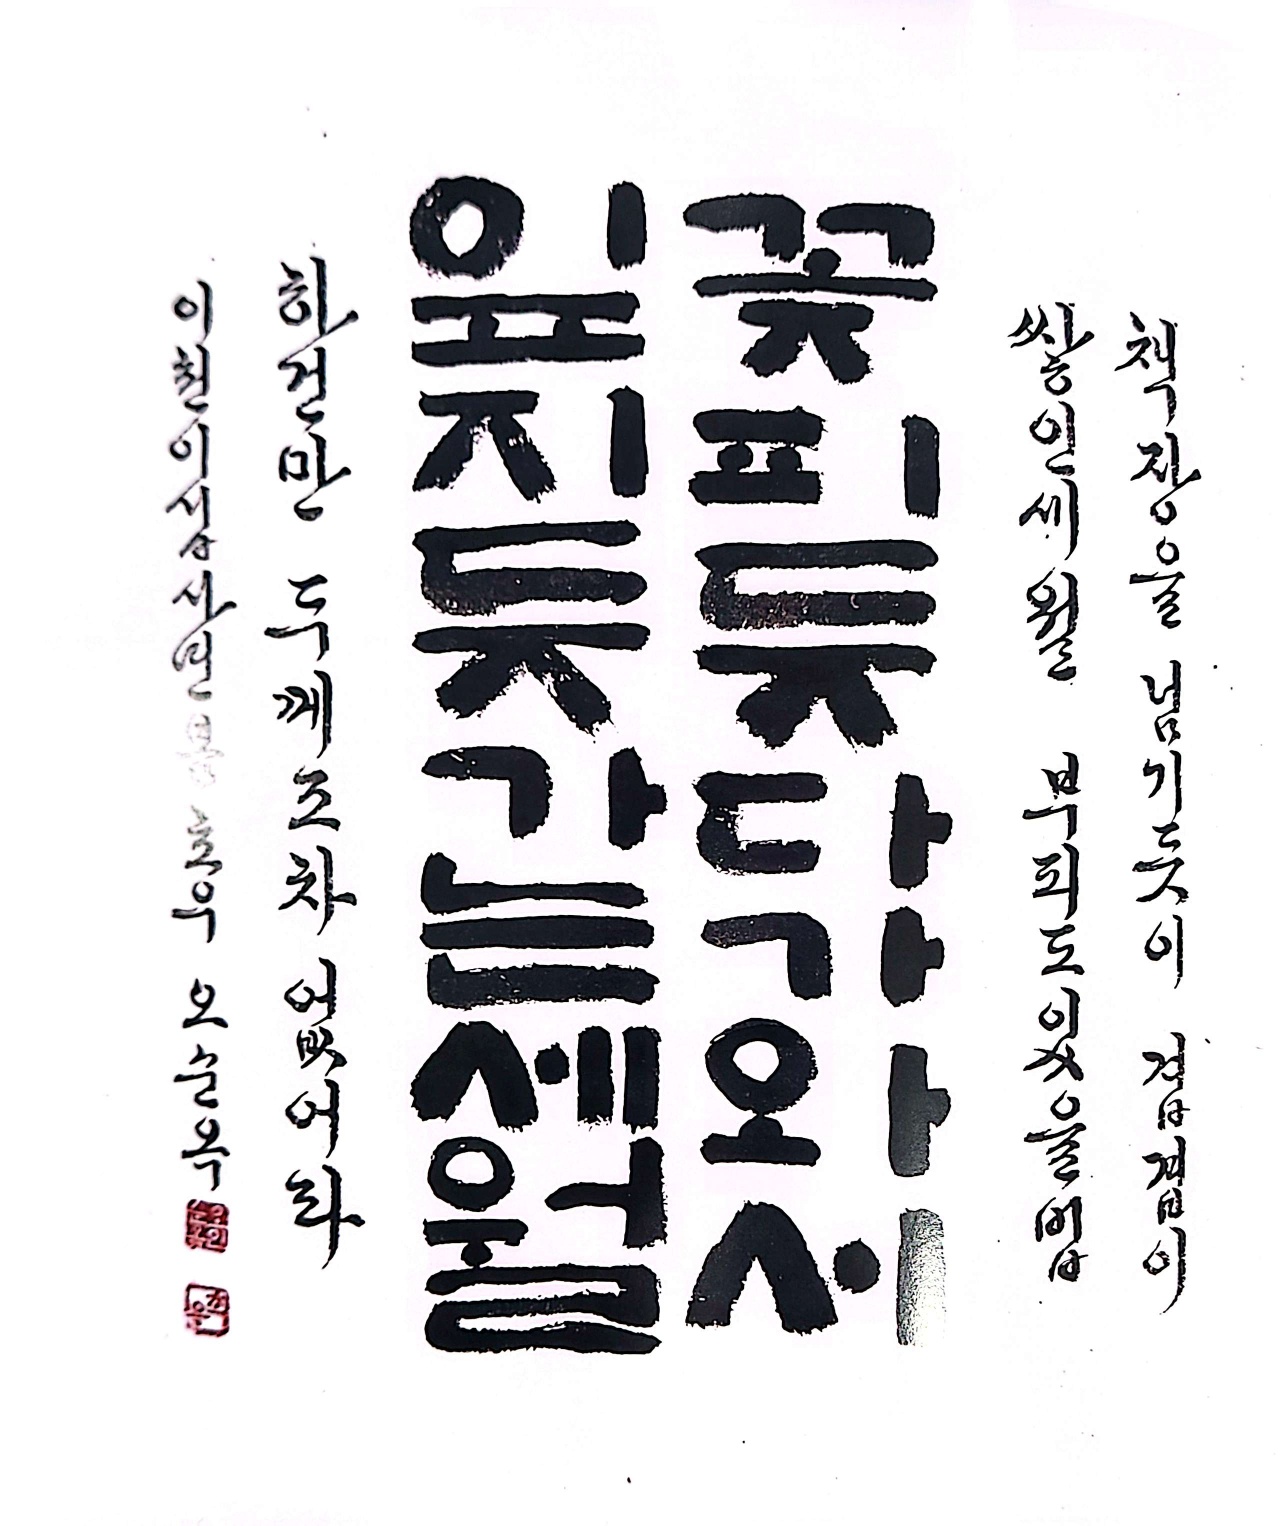 책장을 넘기듯이 겹겹이
쌓인세월 부피도있을법
꽃피듯다가와서
잎지듯가는세월
하건만 두께조차 없어라
이천이십사년봄 오순옥